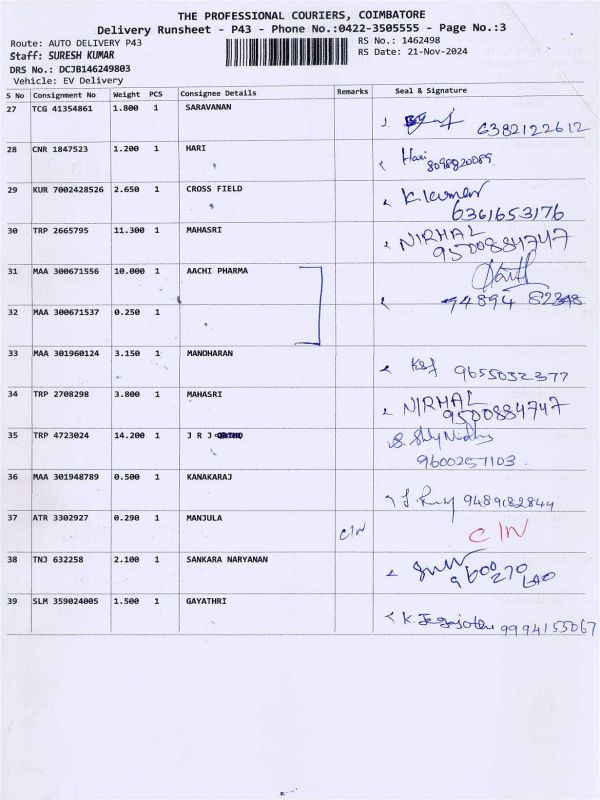 THE PROFESSIONAL COURIERS, COIMBATORE
Delivery Runsheet - P43 - Phone No.:0422-3505555 - Page No.:3
Route: AUTO DELIVERY P43
RS No.: 1462498
Staff: SURESH KUMAR
RS Date: 21-Nov-2024
DRS No.: DCJB146249803
Vehicle: EV Delivery
S No Consignment No Weight PCS Consignee Details Remarks Seal & Signature
27 TCG 41354861 1.800 1 SARAVANAN
6382122612
28 CNR 1847523 1.200 1 HARI
Hari
8098820089
29 KUR 7002428526 2.650 1 CROSS FIELD
K.Kumar
6361653176
30 TRP 2665795 11.300 1 MAHASRI
NIRMAL
9500884747
31 MAA 300671556 10.000 1 AACHI PHARMA
32 MAA 300671537 0.250 1
94894
33 MAA 301960124 3.150 1 MANOHARAN
9655032377
34 TRP 2708298 3.800 1 MAHASRI
NIRMAL
9500884747
35 TRP 4723024 14.200 1 J R J
9600257103
36 MAA 301948789 0.500 1 KANAKARAJ
9489182844
37 ATR 3302927 0.290 1 MANJULA C/N C/N
38 TNJ 632258 2.100 1 SANKARA NARYANAN
39 SLM 359024005 1.500 1 GAYATHRI
9994155067